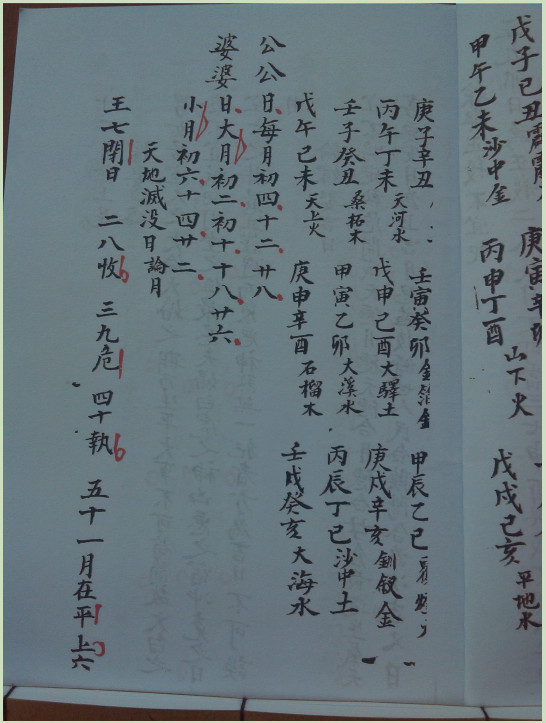 戊子己丑 庚寅辛
甲午乙未沙中金 丙申丁酉山下火 戊戌己亥平地水
庚子辛丑 壬寅癸卯金箔金 甲辰乙巳
丙午丁未天河水 戊申己酉大驛土 庚戌辛亥釧釵金
壬子癸丑桑柘木 甲寅乙卯大溪水 丙辰丁巳沙中土
戊午己未天上火 庚申辛酉石榴木 壬戌癸亥大海水
公公日每月初四十二廿八
婆婆日大月初二初十十八廿六
小月初六十四廿二
天地滅没日論月
王七閉日 二八收 三九危 四十執 五十一月在平上六